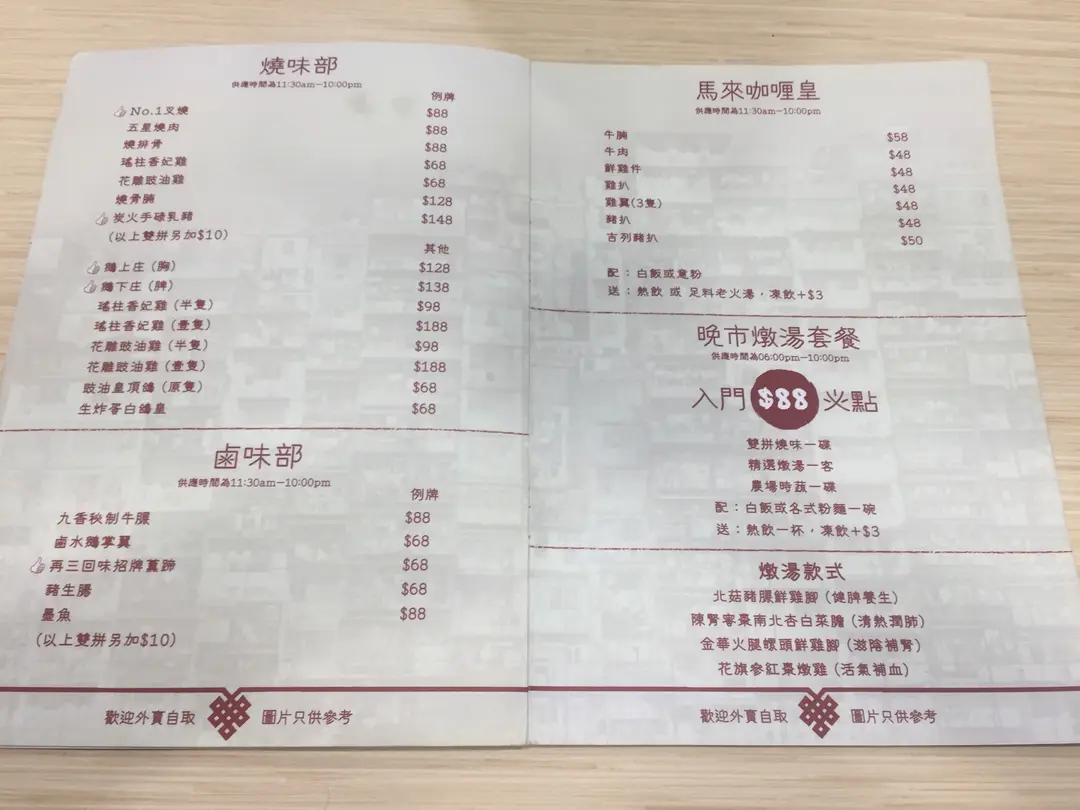 燒味部
供應時間為11:30am－10:00pm
例牌
No.1叉燒 $88
五星燒肉 $88
燒排骨 $88
瑤柱香妃雞 $68
花雕豉油雞 $68
燒骨腩 $128
炭火手碌乳豬 $148
(以上雙拼另加$10)
其他
鵝上庄（胸） $128
鵝下庄（脾） $138
瑤柱香妃雞（半隻） $98
瑤柱香妃雞（壹隻） $188
花雕豉油雞（半隻） $98
花雕豉油雞（壹隻） $188
豉油皇項鴿（原隻） $68
生炸蛋白鴿皇 $68
鹵味部
供應時間為11:30am－10:00pm
例牌
九香秘制牛𦟌 $88
鹵水鵝掌翼 $68
再三回味招牌薑蹄 $68
豬生腸 $68
墨魚 $88
(以上雙拼另加$10)
歡迎外賣自取 圖片只供參考
馬來咖喱皇
供應時間為11:30am－10:00pm
牛腩 $58
牛肉 $48
鮮雞件 $48
雞扒 $48
雞翼(3隻) $48
豬扒 $48
吉列豬扒 $50
配：白飯或意粉
送：熱飲 或 足料老火湯，凍飲+$3
晚市燉湯套餐
供應時間為06:00pm－10:00pm
入門 $88 火點
雙拼燒味一碟
精選燉湯一客
農場時蔬一碟
配：白飯或各式粉麵一碗
送：熱飲一杯，凍飲+$3
燉湯款式
北菇豬𦟌鮮雞腳（健脾養生）
陳腎蜜棗南北杏白菜膽（清熱潤肺）
金華火腿螺頭鮮雞腳（滋陰補腎）
花旗參紅棗燉雞（活氣補血）
歡迎外賣自取 圖片只供參考